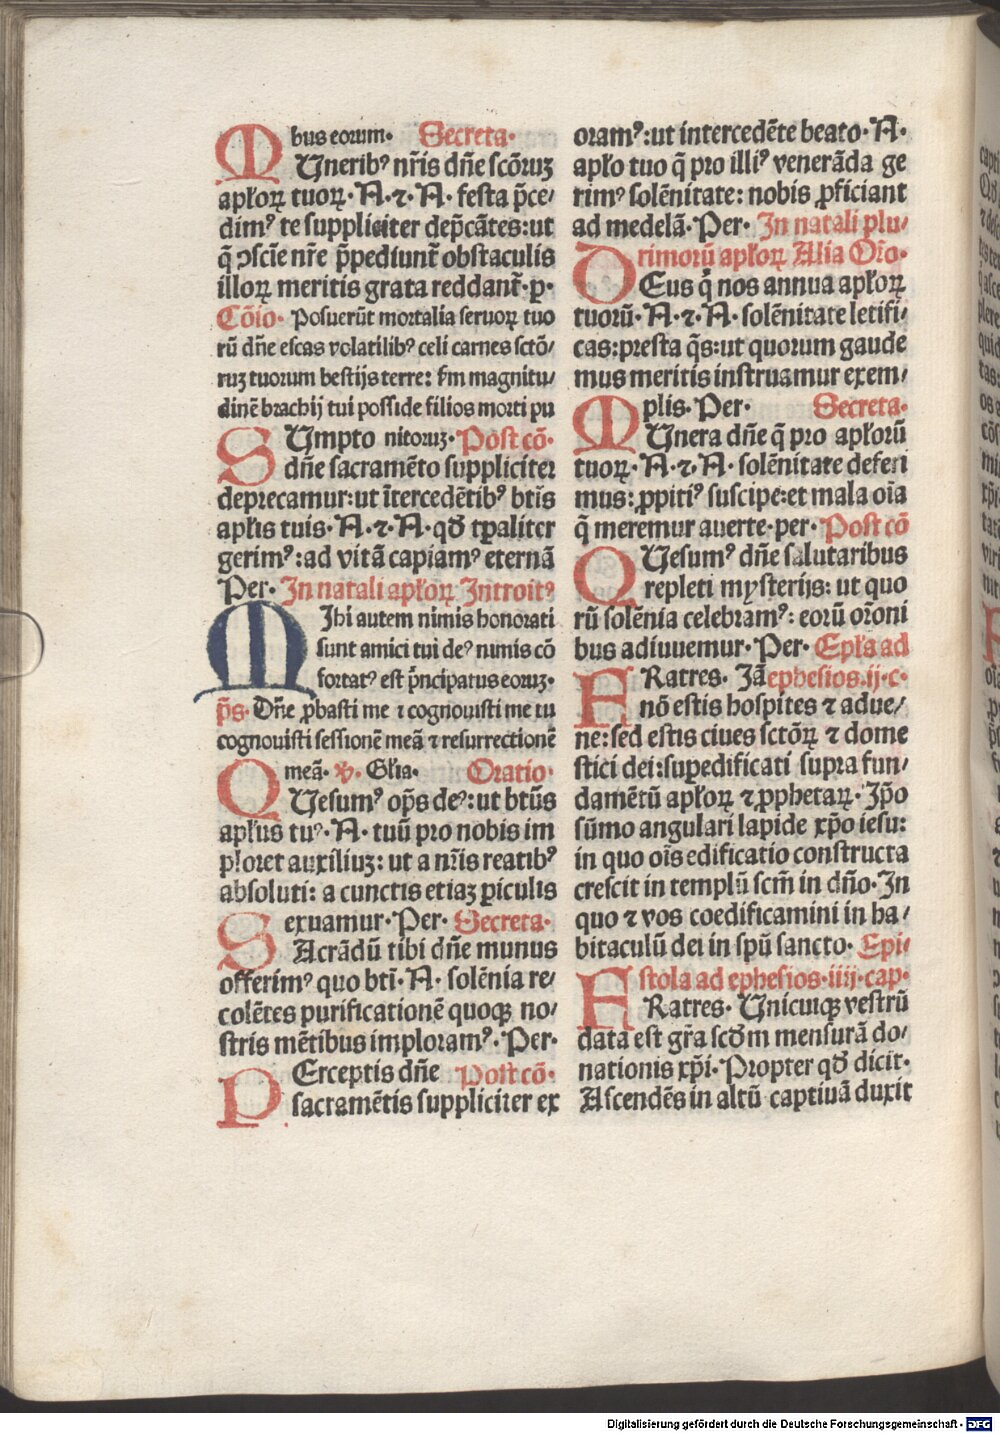 bus eorum. Secreta.
MUnerib⁹ nr̄is dn̄e scōruꝫ
apl'oꝝ tuoꝝ. A. ⁊. A. festa p̄ce/
dim⁹ te suppliciter dep̄cātes: ut
q̄ ꝯscīe nr̄e p̄pediunt̄ obstaculis
illoꝝ meritis grata reddant̄. p.
Cōio. Posuerūt mortalia seruoꝝ tuo
rū dn̄e escas volatilib⁹ celi carnes sctō/
ruꝫ tuorum bestijs terre: s̄m magnitu/
dinē brachij tui posside filios morti pu
nitoruꝫ. Post cō.
SUmpto
dn̄e sacramēto suppliciter
deprecamur: ut ītercedētib⁹ btīs
apl'is tuis. A. ⁊. A. qđ tp̄aliter
gerim⁹: ad vitā capiam⁹ eternā
Per. In natali apl'oꝝ Introit⁹
MIhi autem nimis honorati
sunt amici tui de⁹ nimis cō
fortat⁹ est p̄ncipatus eoruꝫ.
p̄s. Dn̄e ꝓbasti me ⁊ cognouisti me tu
cognouisti sessionē meā ⁊ resurrectionē
meā. v. Gl'ia. Oratio.
QUesum⁹ op̄s de⁹: ut btūs
apl'us tu⁹. A. tuū pro nobis im
ploret auxiliuꝫ: ut a nr̄is reatib⁹
absoluti: a cunctis etiaꝫ ꝑiculis
exuamur. Per. Secreta.
SAcrādū tibi dn̄e munus
offerim⁹ quo btī. A. solēnia re/
colētes purificationē quoqꝫ no/
stris mētibus imploram⁹. Per.
PErceptis dn̄e Post cō.
sacramētis suppliciter ex
oram⁹: ut intercedēte beato. A.
apl'o tuo q̄ pro illi⁹ venerāda ge
rim⁹ solēnitate: nobis ꝓficiant
ad medelā. Per. In natali plu/
rimorū apl'oꝝ Alia Or̄o.
DEus q̄ nos annua apl'oꝝ
tuorū. A. ⁊. A. solēnitate letifi/
cas: presta q̄s: ut quorum gaude
mus meritis instruamur exem/
plis. Per. Secreta.
MUnera dn̄e q̄ pro apl'orū
tuoꝝ. A. ⁊. A. solēnitate deferi
mus: ꝓpiti⁹ suscipe: et mala oīa
q̄ meremur auerte. per. Post cō
QUesum⁹ dn̄e salutaribus
repleti mysterijs: ut quo
rū solēnia celebram⁹: eorū or̄oni
bus adiuuemur. Per. Epl'a ad
FRatres. Jā ephesios. ij. c.
nō estis hospites ⁊ adue/
ne: sed estis ciues sctōꝝ ⁊ dome
stici dei: suꝑedificati supra fun/
damētū apl'oꝝ ⁊ ꝓphetaꝝ. Ip̄o
sūmo angulari lapide xp̄o iesu:
in quo oīs edificatio constructa
crescit in templū scm̄ in dn̄o. In
quo ⁊ vos coedificamini in ha/
bitaculū dei in spū sancto. Epi/
stola ad ephesios. iiij. cap.
FRatres. Unicuiqꝫ vestrū
data est gr̄a scd̄m mensurā do/
nationis xp̄i. Propter qđ dicit.
Ascendēs in altū captiuā duxit
Digitalisierung gefördert durch die Deutsche Forschungsgemeinschaft - DFG